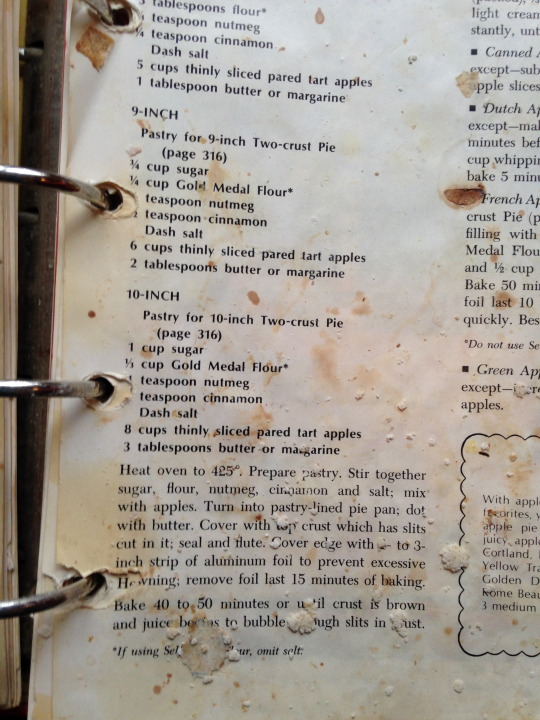 tablespoons flour*
teaspoon nutmeg
¼ teaspoon cinnamon
Dash salt
5 cups thinly sliced pared tart apples
1 tablespoon butter or margarine
9-INCH
Pastry for 9-inch Two-crust Pie
(page 316)
¾ cup sugar
¼ cup Gold Medal Flour*
teaspoon nutmeg
teaspoon cinnamon
Dash salt
6 cups thinly sliced pared tart apples
2 tablespoons butter or margarine
10-INCH
Pastry for 10-inch Two-crust Pie
(page 316)
1 cup sugar
⅓ cup Gold Medal Flour*
teaspoon nutmeg
teaspoon cinnamon
Dash salt
8 cups thinly sliced pared tart apples
3 tablespoons butter or margarine
Heat oven to 425°. Prepare pastry. Stir together
sugar, flour, nutmeg, cinnamon and salt; mix
with apples. Turn into pastry-lined pie pan; dot
with butter. Cover with top crust which has slits
cut in it; seal and flute. Cover edge with to 3-
inch strip of aluminum foil to prevent excessive
remove foil last 15 minutes of baking.
Bake 40 to 50 minutes or until crust is brown
and juice begins to bubble through slits in crust.
*If using omit salt.
light cream
stantly, unt
■ Canned A
except—sub
apple slices
■ Dutch Ap
except—mal
minutes bef
cup whippin
bake 5 minu
French Ap
crust Pie (p
filling with
Medal Flou
and ½ cup
Bake 50 min
foil last 10
quickly. Bes
*Do not use Se
■ Green App
except—
apples.
With apple
favorites, w
apple pie
juicy apple
Cortland,
Yellow Tra
Golden D
Rome Beau
3 medium